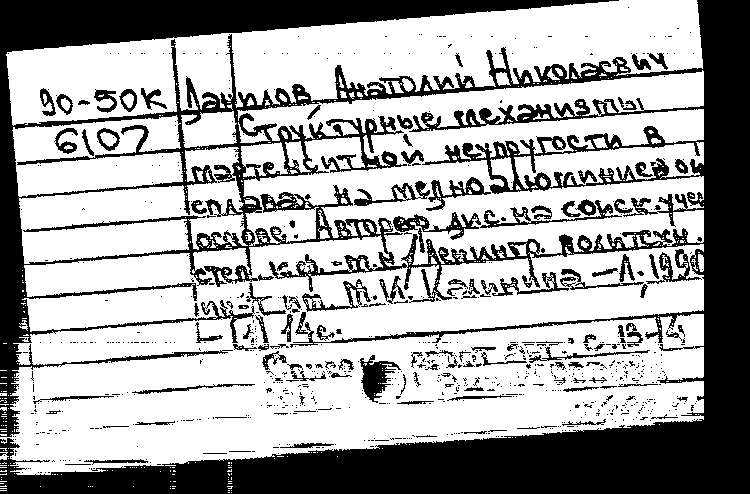 90-50К Данилов Анатолий Николаевич
6107 Структурные механизмы
мартенситной неупругости в
сплавах на медноалюминиевой
основе: Автореф. дис. на соиск. учен
степ. к.ф.-м.н. / Ленингр. политехн.
ин-т им. М.И. Калинина – Л. 1990
– [1] 14с.
Список работ авт.: с. 13-14